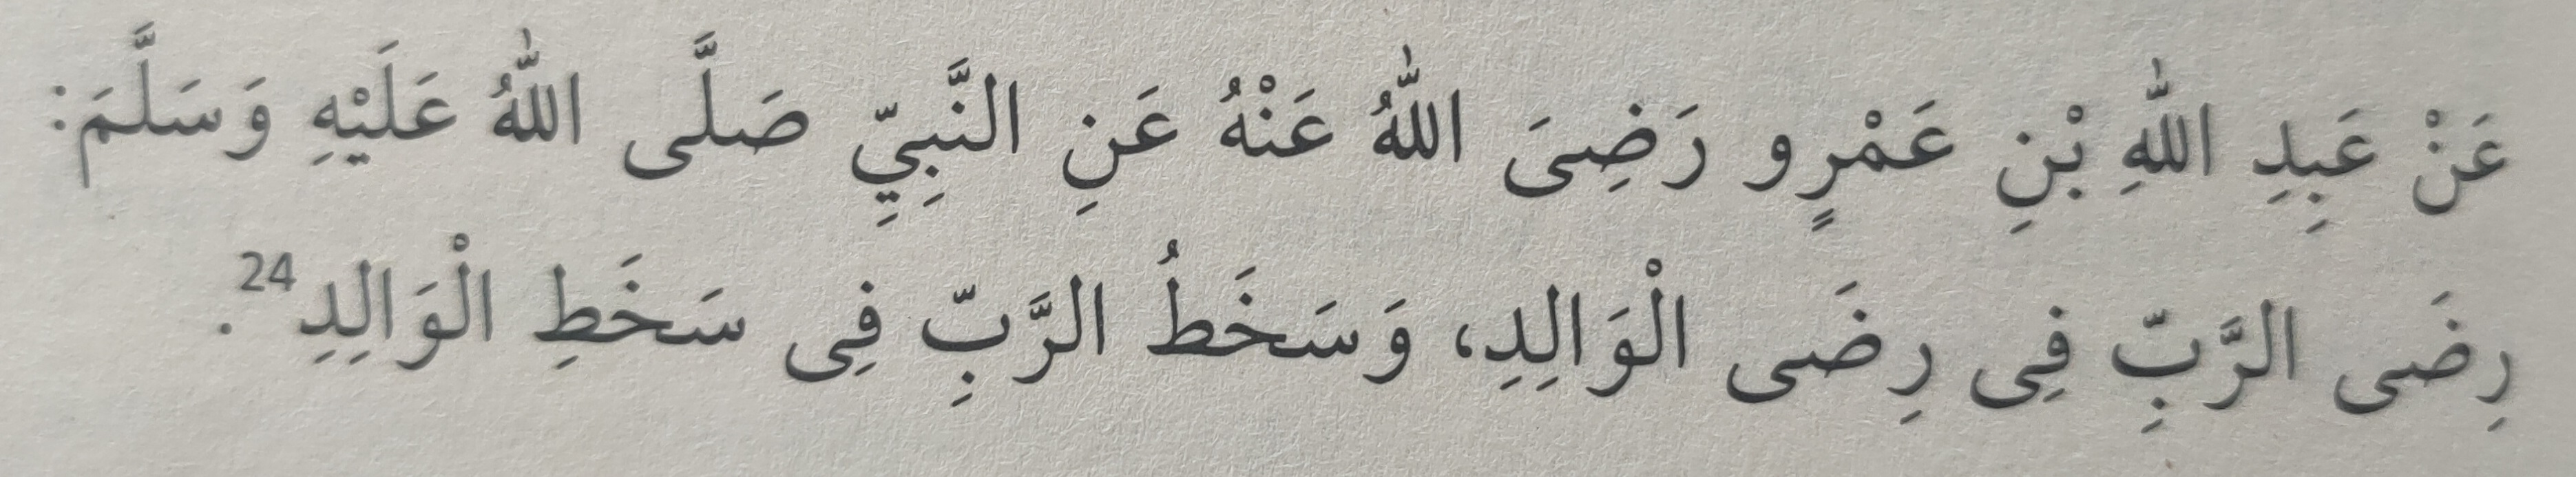 عَنْ عَبِدِ اللّٰهِ بْنِ عَمْرٍو رَضِىَ اللّٰهُ عَنْهُ عَنِ النَّبِيِّ صَلَّى اللّٰهُ عَلَيْهِ وَسَلَّمَ:
رِضَى الرَّبِّ فِى رِضَى الْوَالِدِ، وَسَخَطُ الرَّبِّ فِى سَخَطِ الْوَالِدِ24.